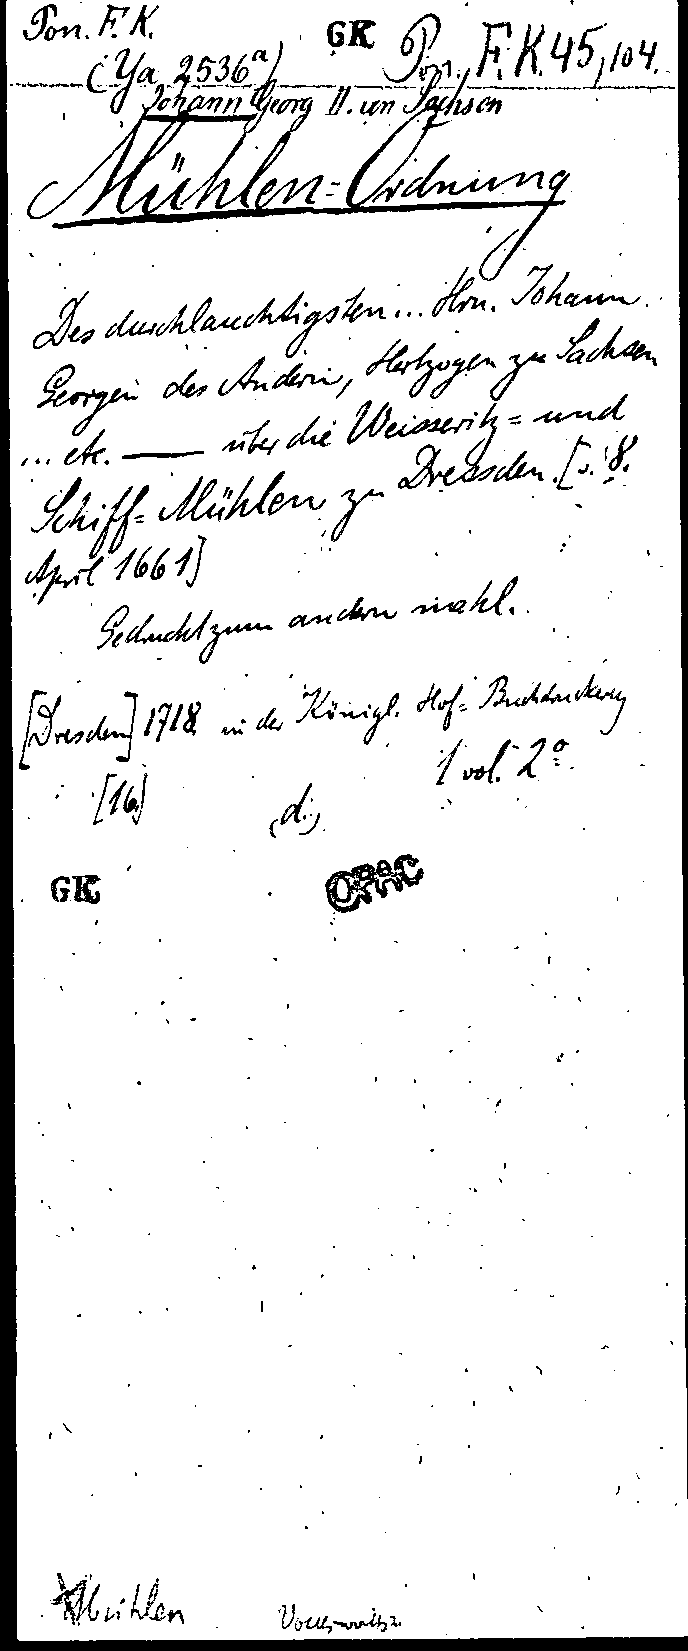 Pon. F. K. GK Pon. F. K. 45, 104.
(Ya 2536a)
Johann Georg II. von Sachsen
Mühlen=Ordnung
Des durchlauchtigsten... Hrn. Johann
Georgen des Andern, Hertzogen zu Sachsen
... etc. — über die Weisseritz= und
Schiff=Mühlen zu Dressden. [v. 8.
April 1661]
Gedruckt zum andern mahl.
[Dresden] 1718. in der Königl. Hof=Buchdruckerey
1 vol. 2°.
[16.] (d.)
GK OPAC
Mühlen